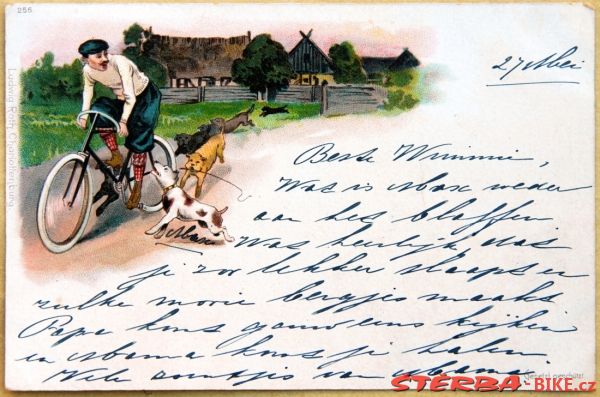 256
Ludwig Roth, Charlottenburg
27 Mei
Beste Wimmie,
Was is Max weder
aan het blaffen
Max
Was heerlijk, dat
je zoo lekker slaapt en
zulke mooie bergjes maakt
Papa komt gauw eens kijken
en Mama komt je halen
Vele zoentjes van Mama
Gesetzl. geschützt.
STĚRBA-BIKE.cz